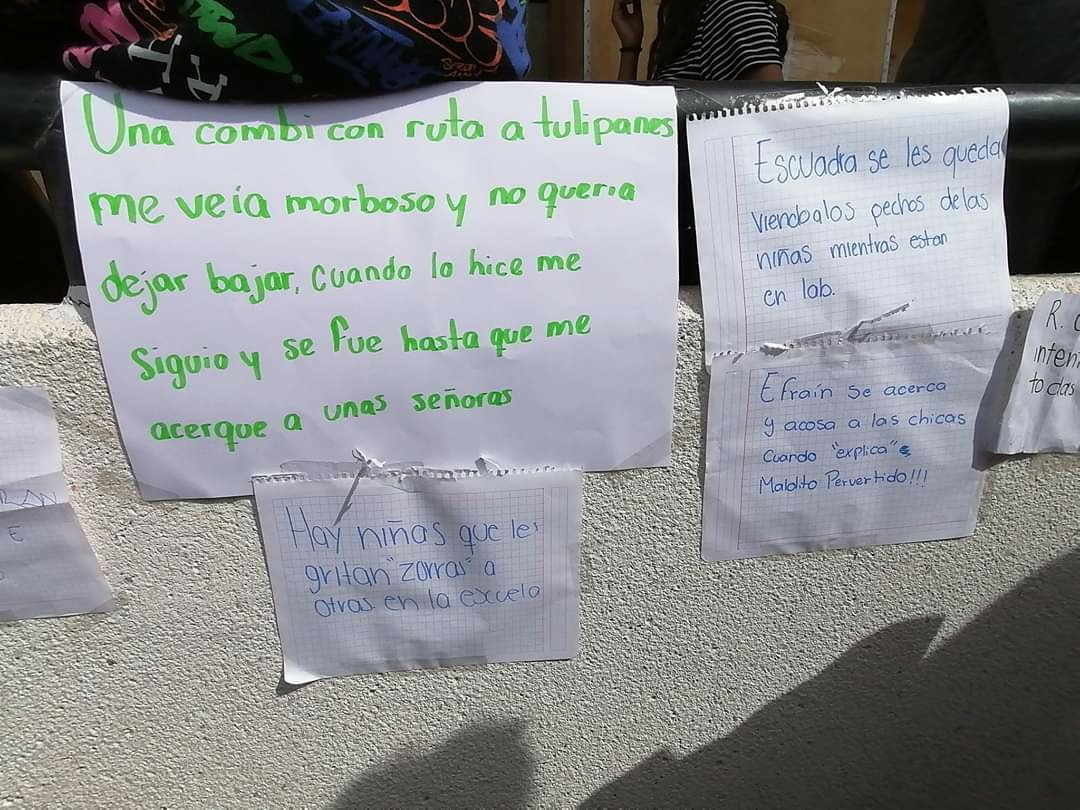 Una combi con ruta a tulipanes
me veía morboso y no queria
dejar bajar, cuando lo hice me
siguio y se fue hasta que me
acerque a unas señoras
Hay niñas que les
gritan "zorras" a
otras en la escuela
Escuadra se les queda
viendo a los pechos de las
niñas mientras estan
en lab.
Efraín se acerca
y acosa a las chicas
cuando "explica"
Maldito Pervertido!!!
R.
inten
todas
E